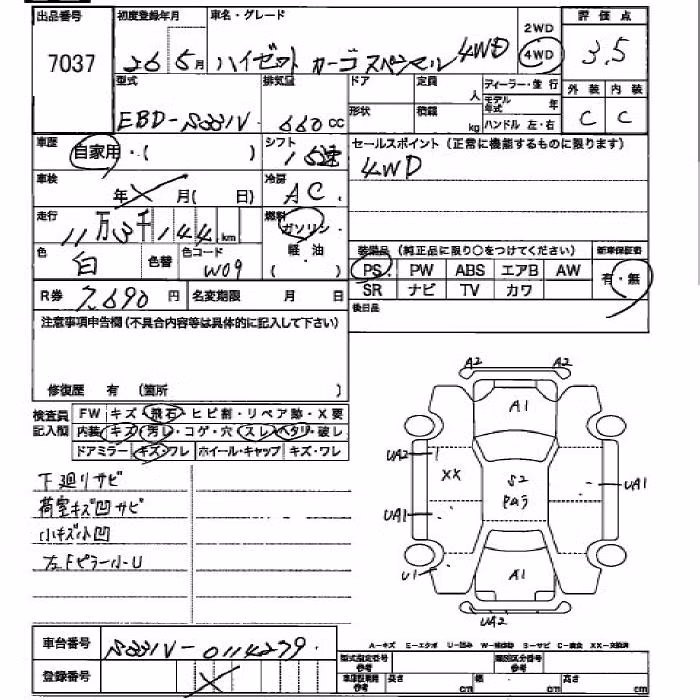 出品番号 初度登録年月 車名・グレード 評価点
7037 26 5月 ハイゼット カーゴ スペシャル 4WD 2WD 4WD 3.5
型式 排気量 ドア 定員 人 ディーラー・並行 外装 内装
EBD-S331V 660 CC 形状 積載 kg モデル年式 年 C C
ハンドル 左・右
車歴 自家用・( ) シフト 5速 セールスポイント (正常に機能するものに限ります)
4WD
車検 年 月( 日) 冷房 AC
走行 11万3千144km 燃料 ガソリン 軽油 ( )
色 白 色替 色コード W09
装備品 (純正品に限り○をつけてください) 新車保証書
PS PW ABS エアB AW 有・無
SR ナビ TV カワ
R券 7,690円 名変期限 月 日 後日品
注意事項申告欄(不具合内容等は具体的に記入して下さい)
修復歴 有 (箇所 )
検査員記入欄 FW キズ・飛石・ヒビ割・リペア跡・X要
内装・キズ・汚レ・コゲ・穴・スレ・ヘタリ・破レ
ドアミラー キズ・ワレ ホイール・キャップ キズ・ワレ
下廻りサビ
荷室キズ凹サビ
小キズ小凹
左Fピラー小U
A2 A2
A1
UA2
XX S2 UA1
UA1
U1 A1
UA2
車台番号 S331V-0114279
登録番号
A-キズ E-エクボ U-凹み W-補修跡 S-サビ C-腐食 XX-交換済
型式指定番号 参考 類別区分番号 参考
車体証明書 参考 長さ cm 幅 cm 高さ cm